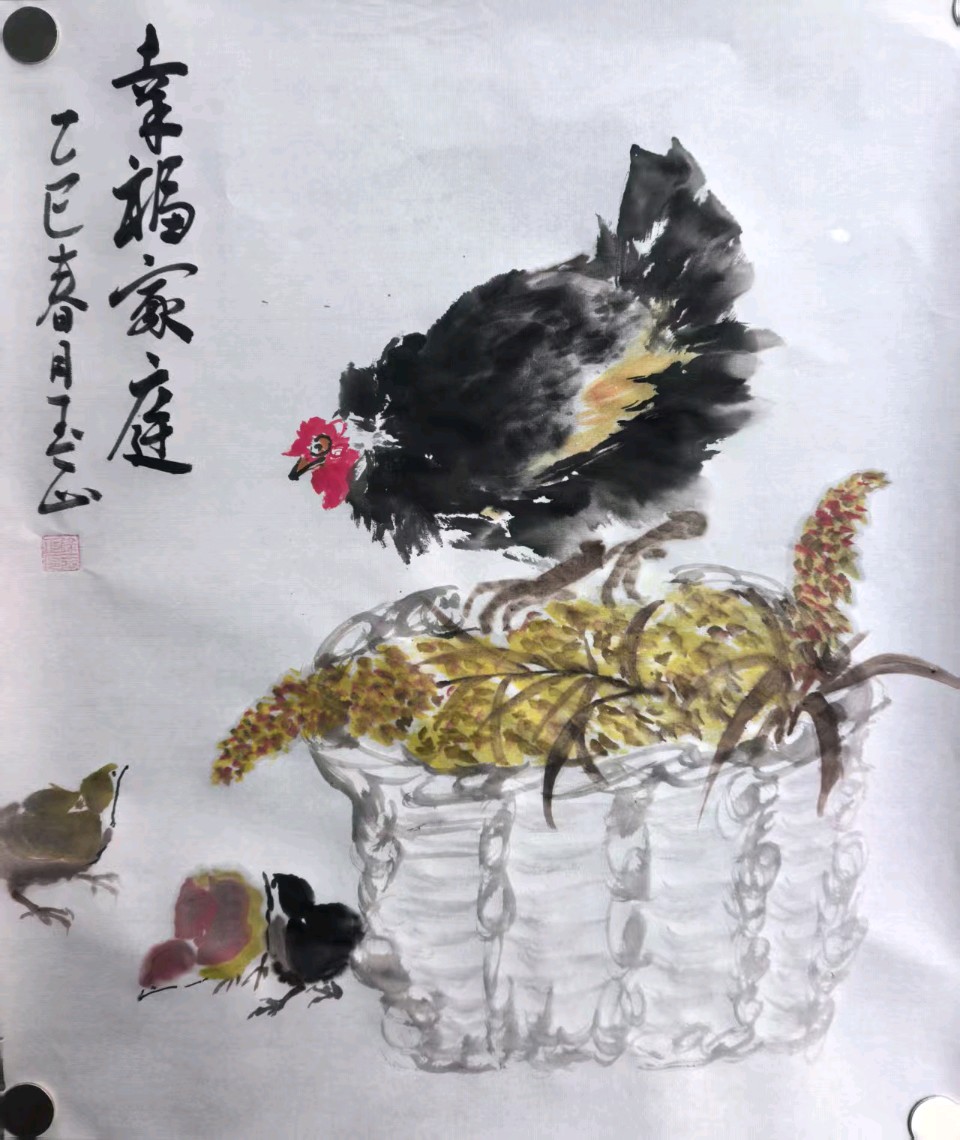 幸福家庭
乙巳春月玉山